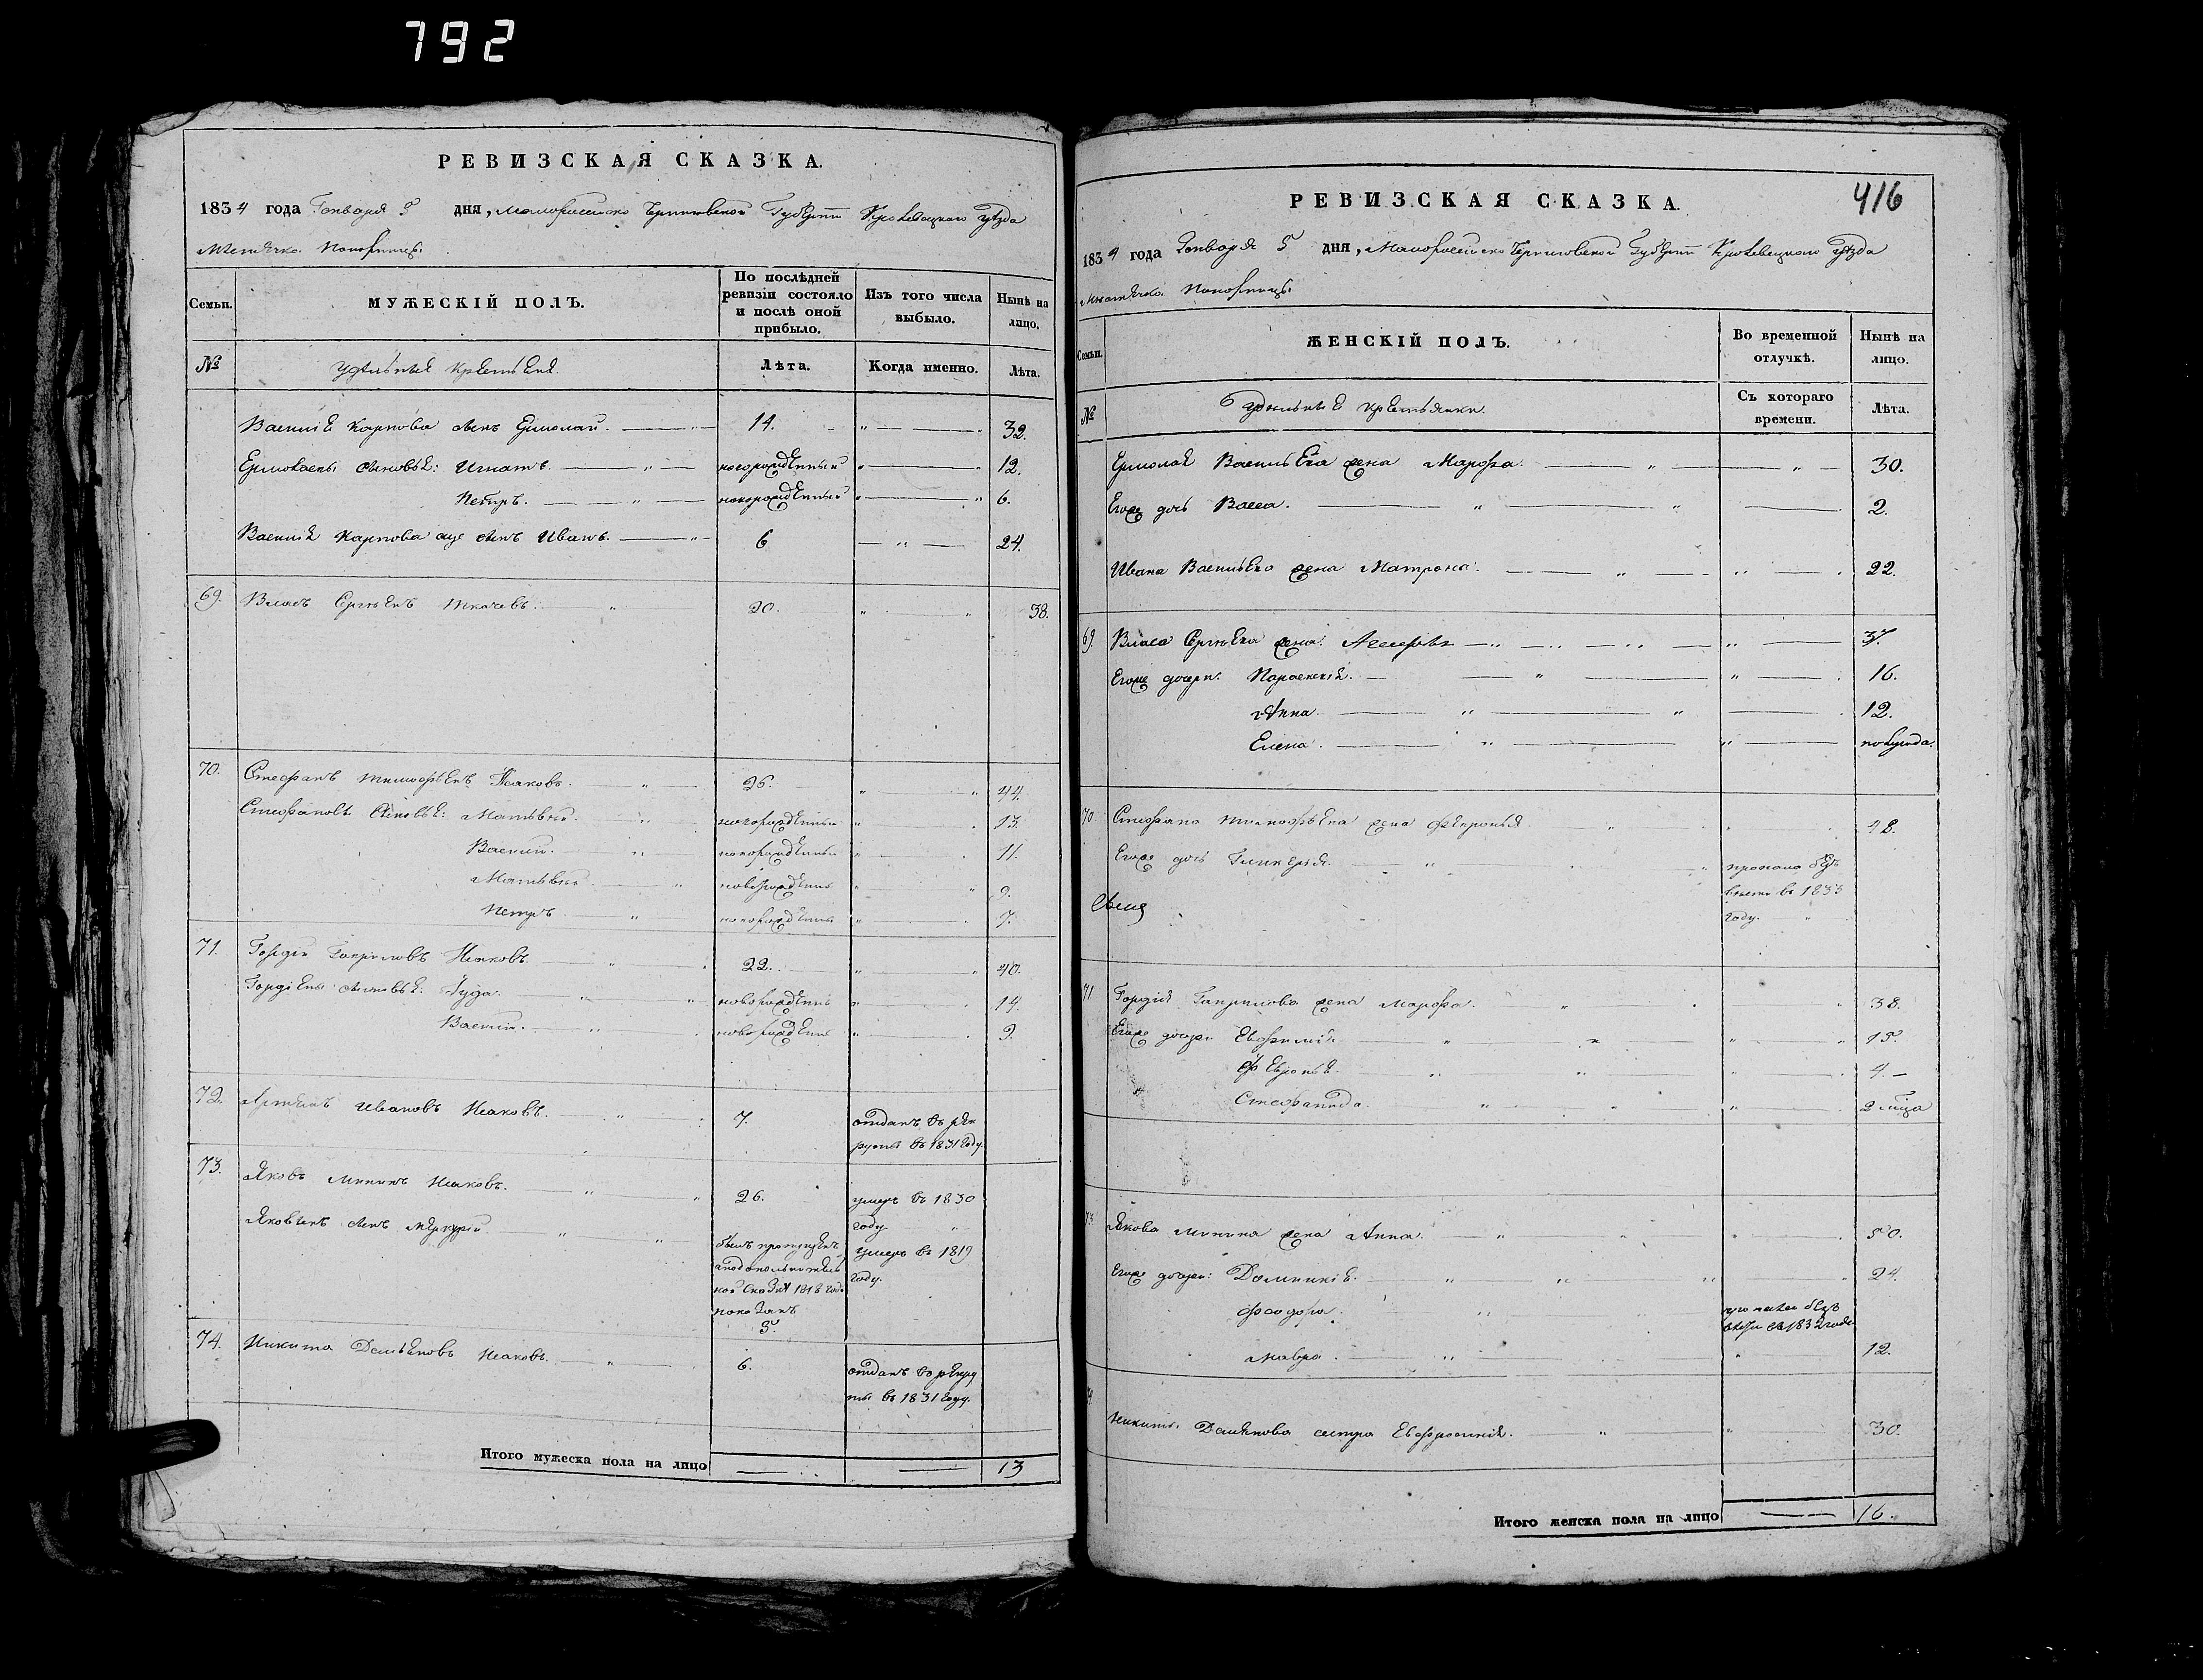 792
РЕВИЗСКАЯ СКАЗКА.
1834 года Генваря 5 дня, Малороссійско Черниговской Губерніи Кролевецкого уѣзда
Мѣстечка Понорницы
Семьи.
МУЖЕСКІЙ ПОЛЪ.
По послѣдней ревизіи состояло и послѣ оной прибыло.
Изъ того числа выбыло.
Нынѣ на лицо.
№
Удѣльныя крестьяня.
Лѣта.
Когда именно.
Лѣта.
Василія Карпова сынъ Ермолай. 14. 32.
Ермолаевы сыновья: Игнатъ. новорожденный 12.
Петръ. новорожденный 6.
Василія Карпова еще сынъ Иванъ. 6 24.
69. Власъ Сергѣевъ Ткачевъ. 20. 38.
70. Стефанъ Тимофѣевъ Исаковъ. 26. 44.
Стефановы сыновья: Матвѣй. новорожденный 13.
Василій. новорожденный 11.
Матвѣй новорожденный 9.
Петръ новорожденный 7.
71. Гордій Гавриловъ Исаковъ. 22. 40.
Гордіевы сыновья: Іуда. новорожденный 14.
Василій. новорожденный 9.
72. Артемъ Ивановъ Исаковъ. 7. отданъ въ рек
руты въ 1831 году.
73. Яковъ Мининъ Исаковъ. 26. умеръ въ 1830
году.
Яковлевъ сынъ Меркурій былъ пропущенъ
а по дополнитель
ной сказки 1818 года
показанъ
5.
умеръ въ 1819
году.
74. Никита Демьяновъ Исаковъ. 6. отданъ въ рекру
ты въ 1831 году.
Итого мужеска пола на лицо 13
416
РЕВИЗСКАЯ СКАЗКА.
1834 года Генваря 5 дня, Малороссійско Черниговской Губерніи Кролевецкого уѣзда
Мѣстечка Понорницы
Семьи.
ЖЕНСКІЙ ПОЛЪ.
Во временной отлучкѣ.
Нынѣ на лицо.
№
Удѣльныя крестьянки.
Съ котораго времени.
Лѣта.
Ермолая Васильева жена Марфа. 30.
Егоже дочь Васса. 2.
Ивана Васильева жена Матрона. 22.
69. Власа Сергѣева жена 37.
Егоже дочери: Параскевія. 16.
Анна. 12.
Елена. полугода.
70. Стефана Тимофѣева жена Февронья 48.
Егоже дочь Гликерія. пропала безъ
вѣсти въ 1833
году.
71. Гордія Гаврилова жена Марфа. 38.
Егоже дочери Евфимія 15.
Февронья. 4.
Стефанида. 2
73. Якова Минина жена Анна. 50.
Егоже дочери: Домникія. 24.
Феодора. пропала безъ
вѣсти въ 1832 годѣ
Мавра. 12.
74. Никиты Демьянова сестра Евфросинія. 30.
Итого женска пола на лицо 16.